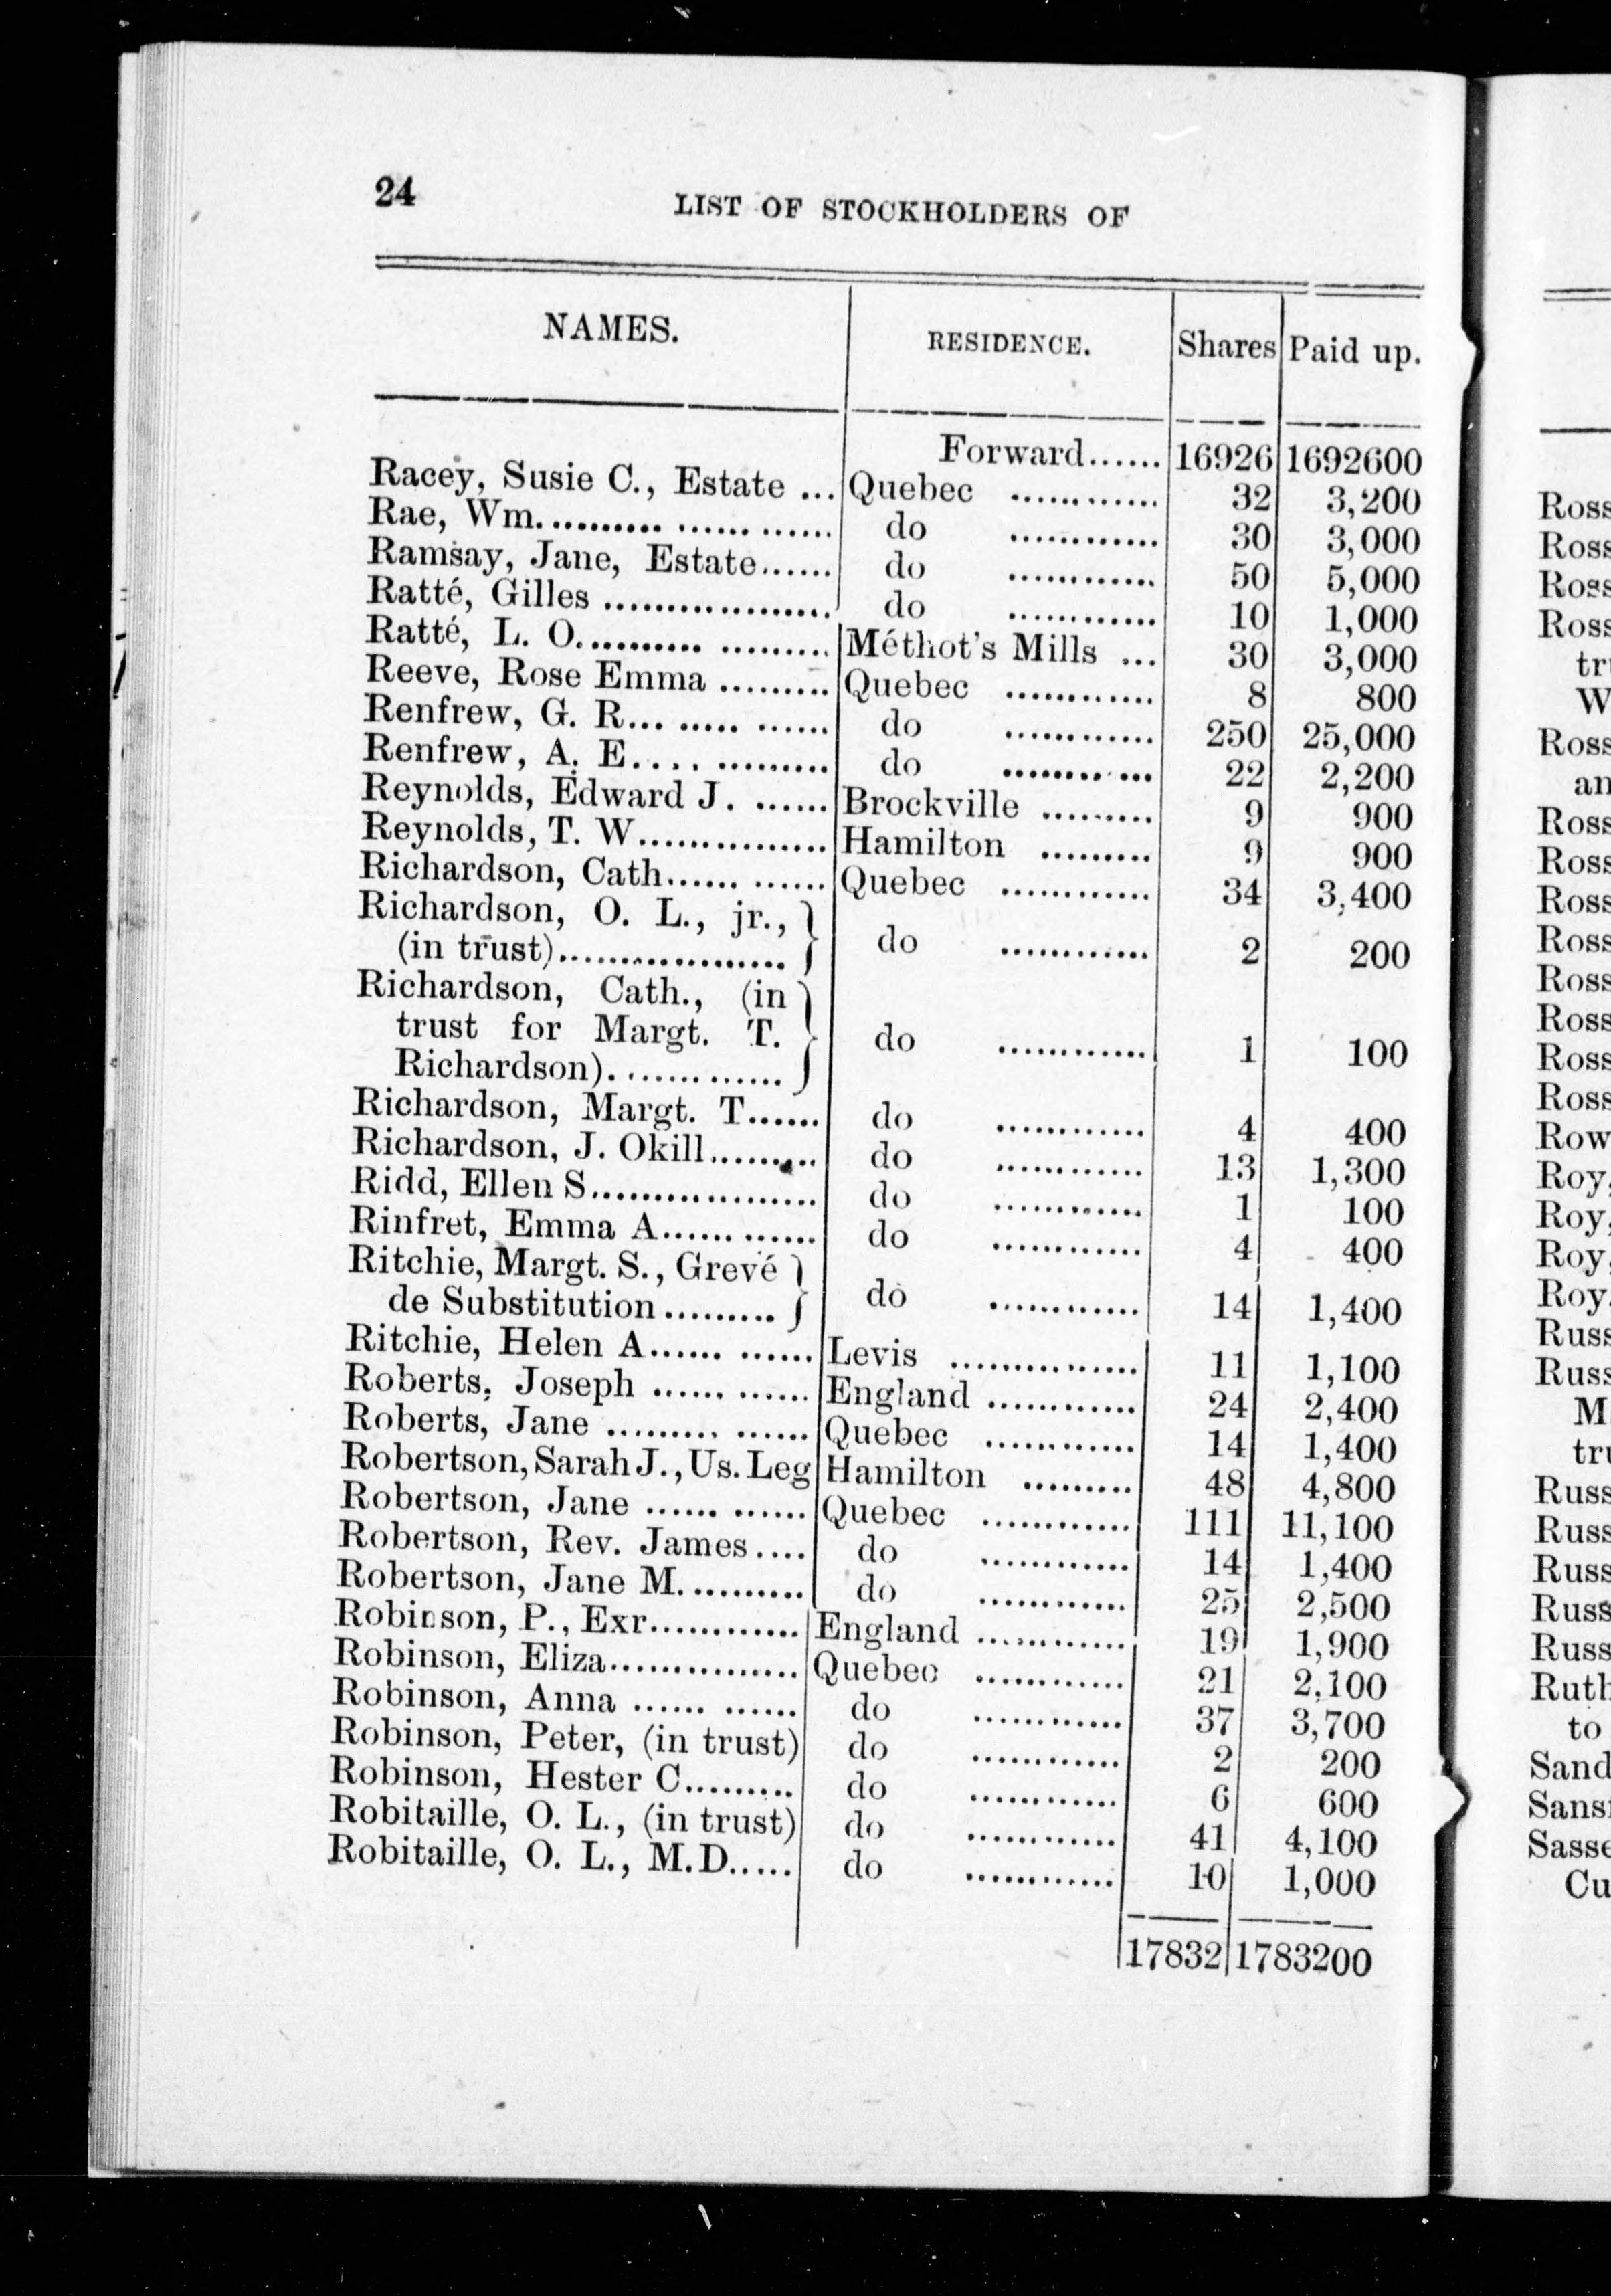 24
LIST OF STOCKHOLDERS OF
NAMES. RESIDENCE. Shares Paid up.
Forward...... 16926 1692600
Racey, Susie C., Estate ... Quebec ............ 32 3,200
Rae, Wm....................... do ............ 30 3,000
Ramsay, Jane, Estate...... do ............ 50 5,000
Ratté, Gilles .................. do ............ 10 1,000
Ratté, L. O.................... Méthot's Mills ... 30 3,000
Reeve, Rose Emma ......... Quebec ............ 8 800
Renfrew, G. R... ..... ...... do ............ 250 25,000
Renfrew, A. E.... ......... do ............ 22 2,200
Reynolds, Edward J. ...... Brockville ......... 9 900
Reynolds, T. W............... Hamilton ......... 9 900
Richardson, Cath...... ...... Quebec ............ 34 3,400
Richardson, O. L., jr.,
(in trust).................. do ............ 2 200
Richardson, Cath., (in
trust for Margt. T. do ............ 1 100
Richardson)..............
Richardson, Margt. T...... do ............ 4 400
Richardson, J. Okill......... do ............ 13 1,300
Ridd, Ellen S.................. do ............ 1 100
Rinfret, Emma A...... ...... do ............ 4 400
Ritchie, Margt. S., Grevé
de Substitution ......... do ............ 14 1,400
Ritchie, Helen A...... ...... Levis ............... 11 1,100
Roberts, Joseph ...... ...... England ............ 24 2,400
Roberts, Jane ......... ...... Quebec ............ 14 1,400
Robertson, Sarah J., Us. Leg Hamilton ......... 48 4,800
Robertson, Jane ...... ...... Quebec ............ 111 11,100
Robertson, Rev. James .... do ............ 14 1,400
Robertson, Jane M. ......... do ............ 25 2,500
Robinson, P., Exr............ England ............ 19 1,900
Robinson, Eliza............... Quebec ............ 21 2,100
Robinson, Anna ...... ...... do ............ 37 3,700
Robinson, Peter, (in trust) do ............ 2 200
Robinson, Hester C......... do ............ 6 600
Robitaille, O. L., (in trust) do ............ 41 4,100
Robitaille, O. L., M.D..... do ............ 10 1,000
17832 1783200
Ross
Ross
Ross
Ross
tr
W
Ross
an
Ross
Ross
Ross
Ross
Ross
Ross
Ross
Ross
Row
Roy,
Roy,
Roy,
Roy,
Russ
Russ
M
tru
Russ
Russ
Russ
Russ
Russ
Ruth
to
Sand
Sans
Sasse
Cu